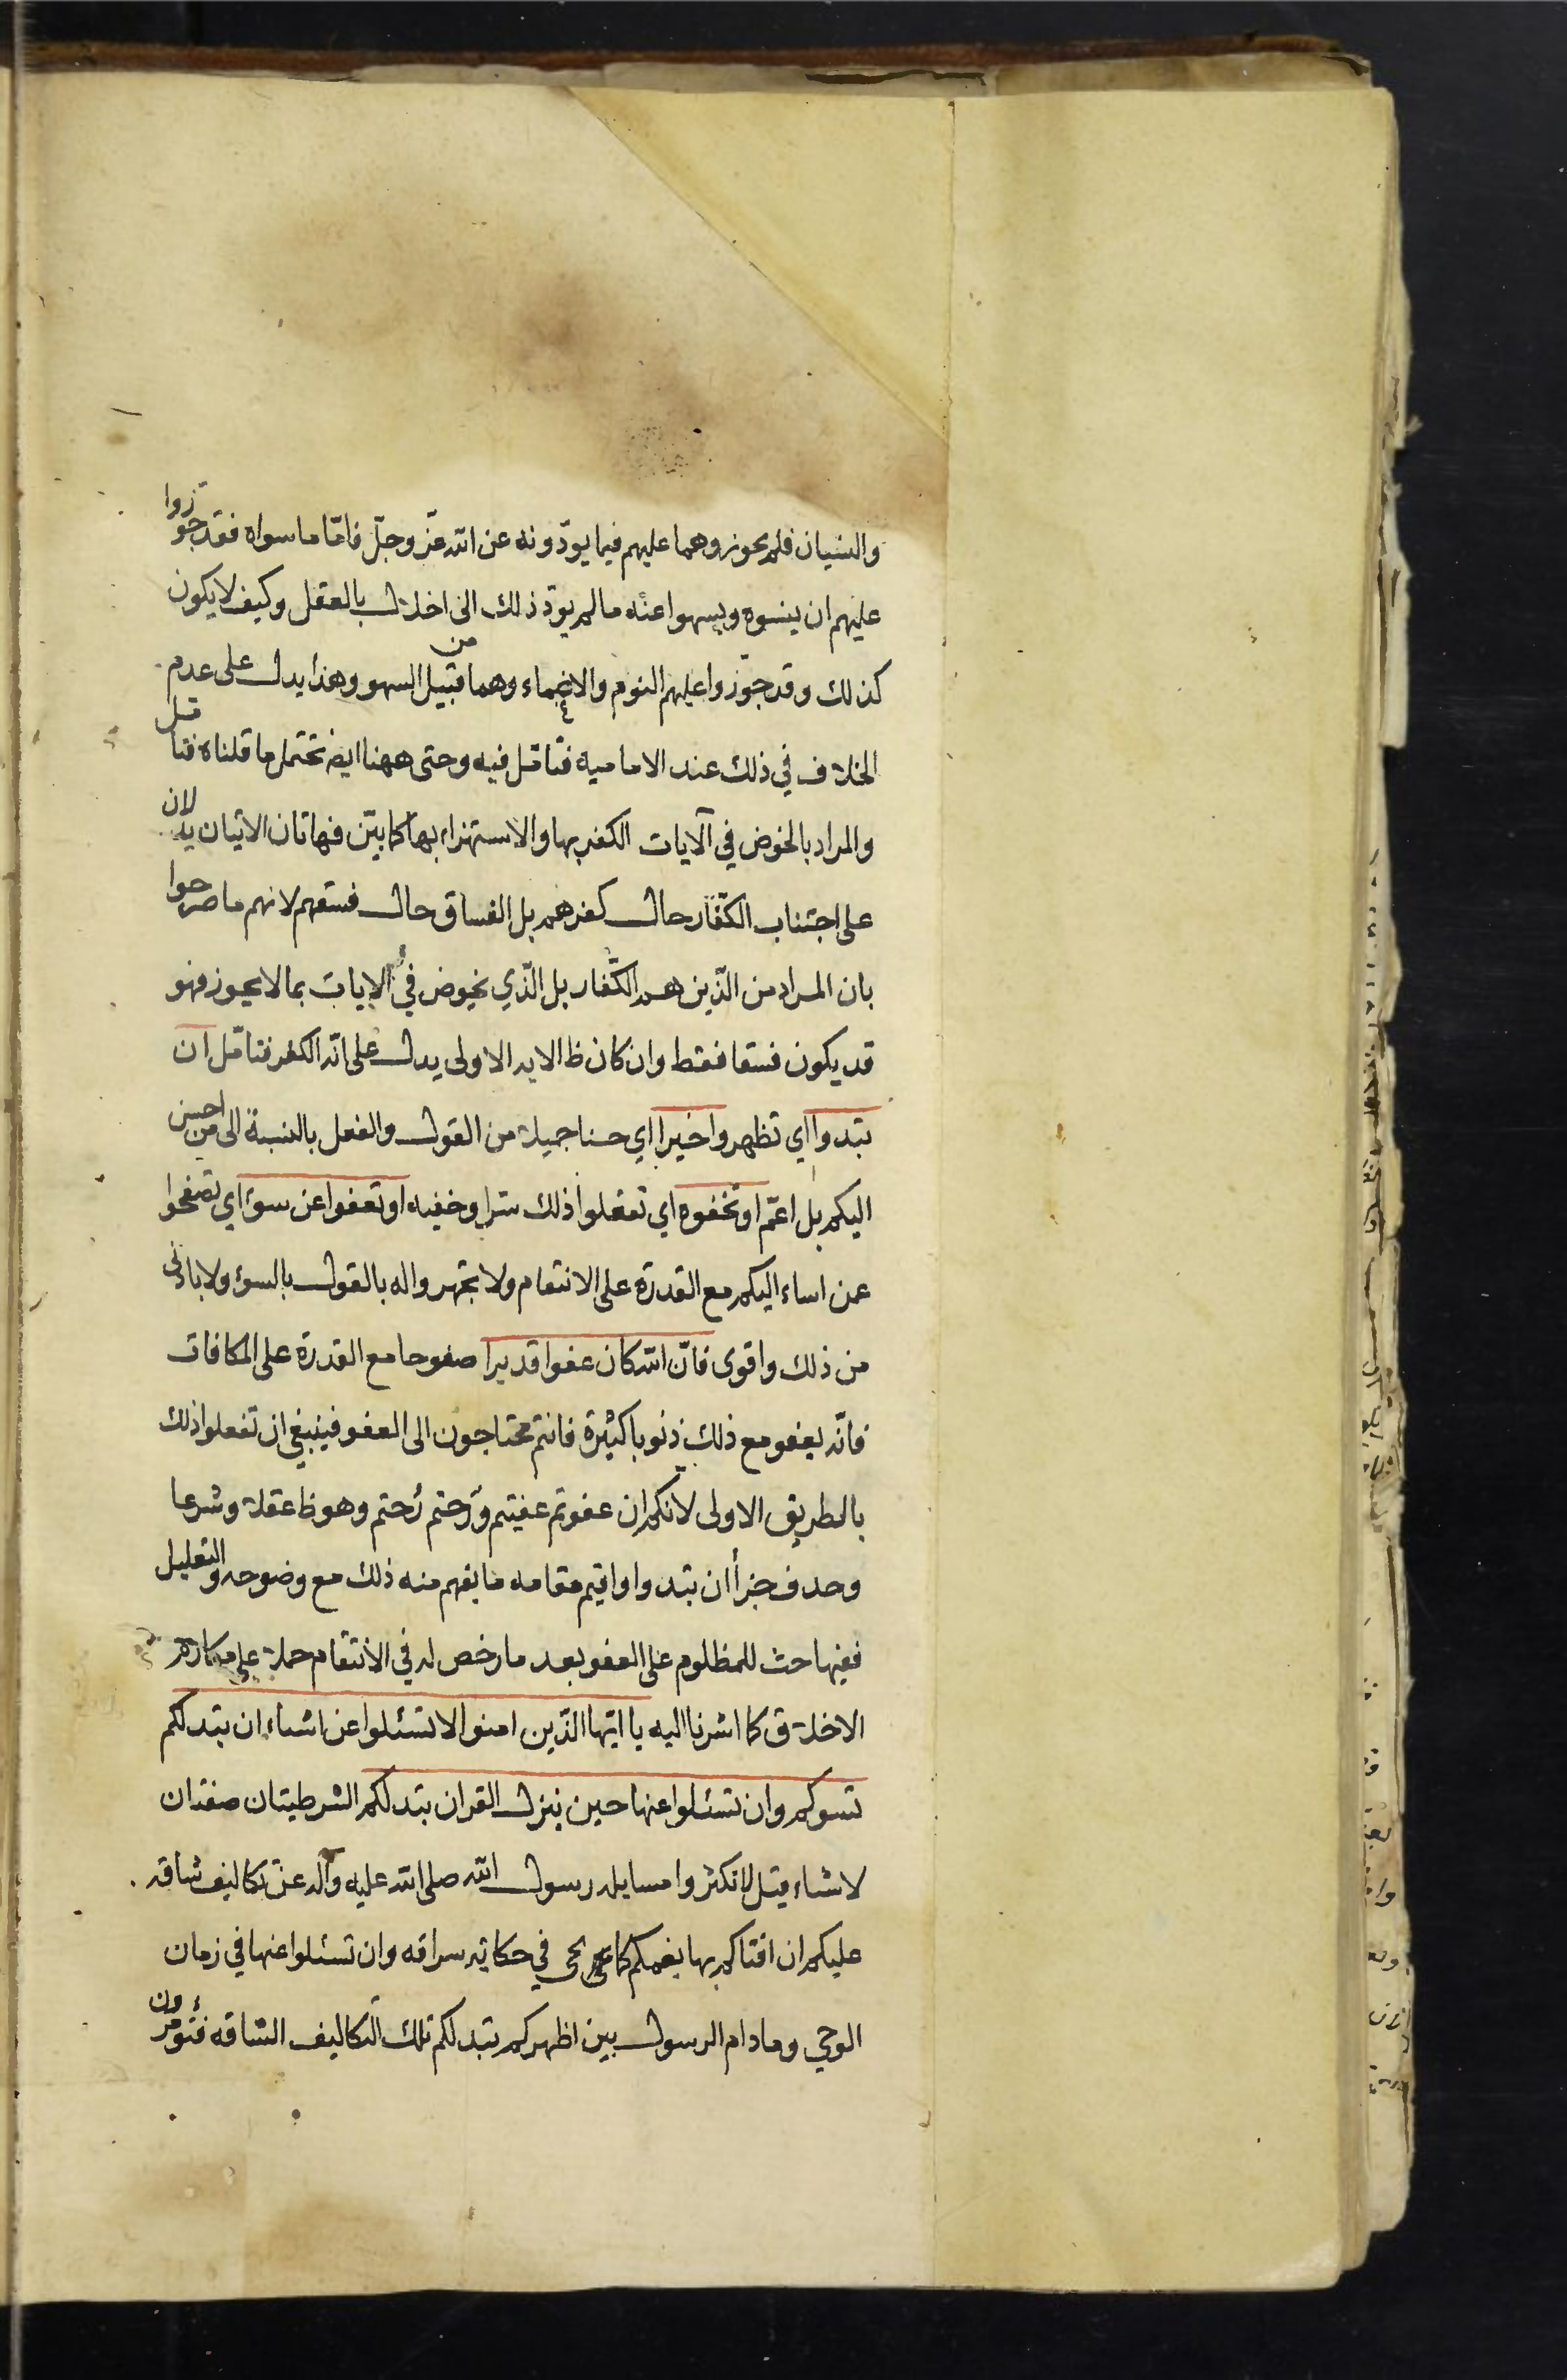 والنسيان فلم يجوزوهما عليهم فيما يودّونه عن الله عزّ وجلّ فامّا ما سواه فقد جوّزوا
عليهم ان ينسوه ويسهوا عنه ما لم يودّ ذلك الى اخلال بالعقل وكيف لا يكون
كذلك وقد جوّزوا عليهم النوم والاغماء وهما من قبيل السهو وهذا يدل على عدم
الخلاف في ذلك عند الاماميه فتامّل فيه وحتى ههنا ايض تحتمل ما قلناه فتامل
والمراد بالخوض في الآيات الكفر بها والاستهزاء بها كما بيّن فهاتان الايتان يدلان
على اجتناب الكفّار حال كفرهم بل الفساق حال فسقهم لانهم ما صرحوا
بان المراد من الّذين هم الكفّار بل الّذي يخوض في الايات بما لا يجوز فهو
قد يكون فسقا فقط وان كان ظ الايه الاولى يدل على انّه الكفر فتامّل ان
تبدوا اي تظهروا خيرا اي حسنا جميلا من القول والفعل بالنسبة الى من احسن
اليكم بل اعمّ او تخفوه اي تفعلوا ذلك سرا وخفيه او تعفوا عن سوء اي تصفحوا
عمن اساء اليكم مع القدرة على الانتقام ولا تجهروا له بالقول بالسوء ولا بادنى
من ذلك واقوى فانّ الله كان عفوا قديرا صفوحا مع القدرة على المكافات
فانّه يعفو مع ذلك ذنوبا كثيرة فانتم محتاجون الى العفو فينبغي ان تفعلوا ذلك
بالطريق الاولى لانكم ان عفوتم عفيتم ورحمتم رحمتم وهو ظ عقلا وشرعا
وحذف جزاء ان تبدوا واقيم مقامه ما يفهم منه ذلك مع وضوحه والتعليل
ففيها حث للمظلوم على العفو بعد ما رخص له في الانتقام حملا على مكارم
الاخلاق كما اشرنا اليه يا ايّها الّذين امنوا لا تسئلوا عن اشياء ان تبد لكم
تسوكم وان تسئلوا عنها حين ينزل القران تبد لكم الشرطيتان صفتان
لاشياء قيل لا تكثروا مسايله رسول الله صلى الله عليه وآله عن تكاليف شاقه
عليكم ان افتاكم بها يغمكم كما يجي في حكاية سراقه وان تسئلوا عنها في زمان
الوحي وما دام الرسول بين اظهركم تبد لكم تلك التكاليف الشاقه فتومرون